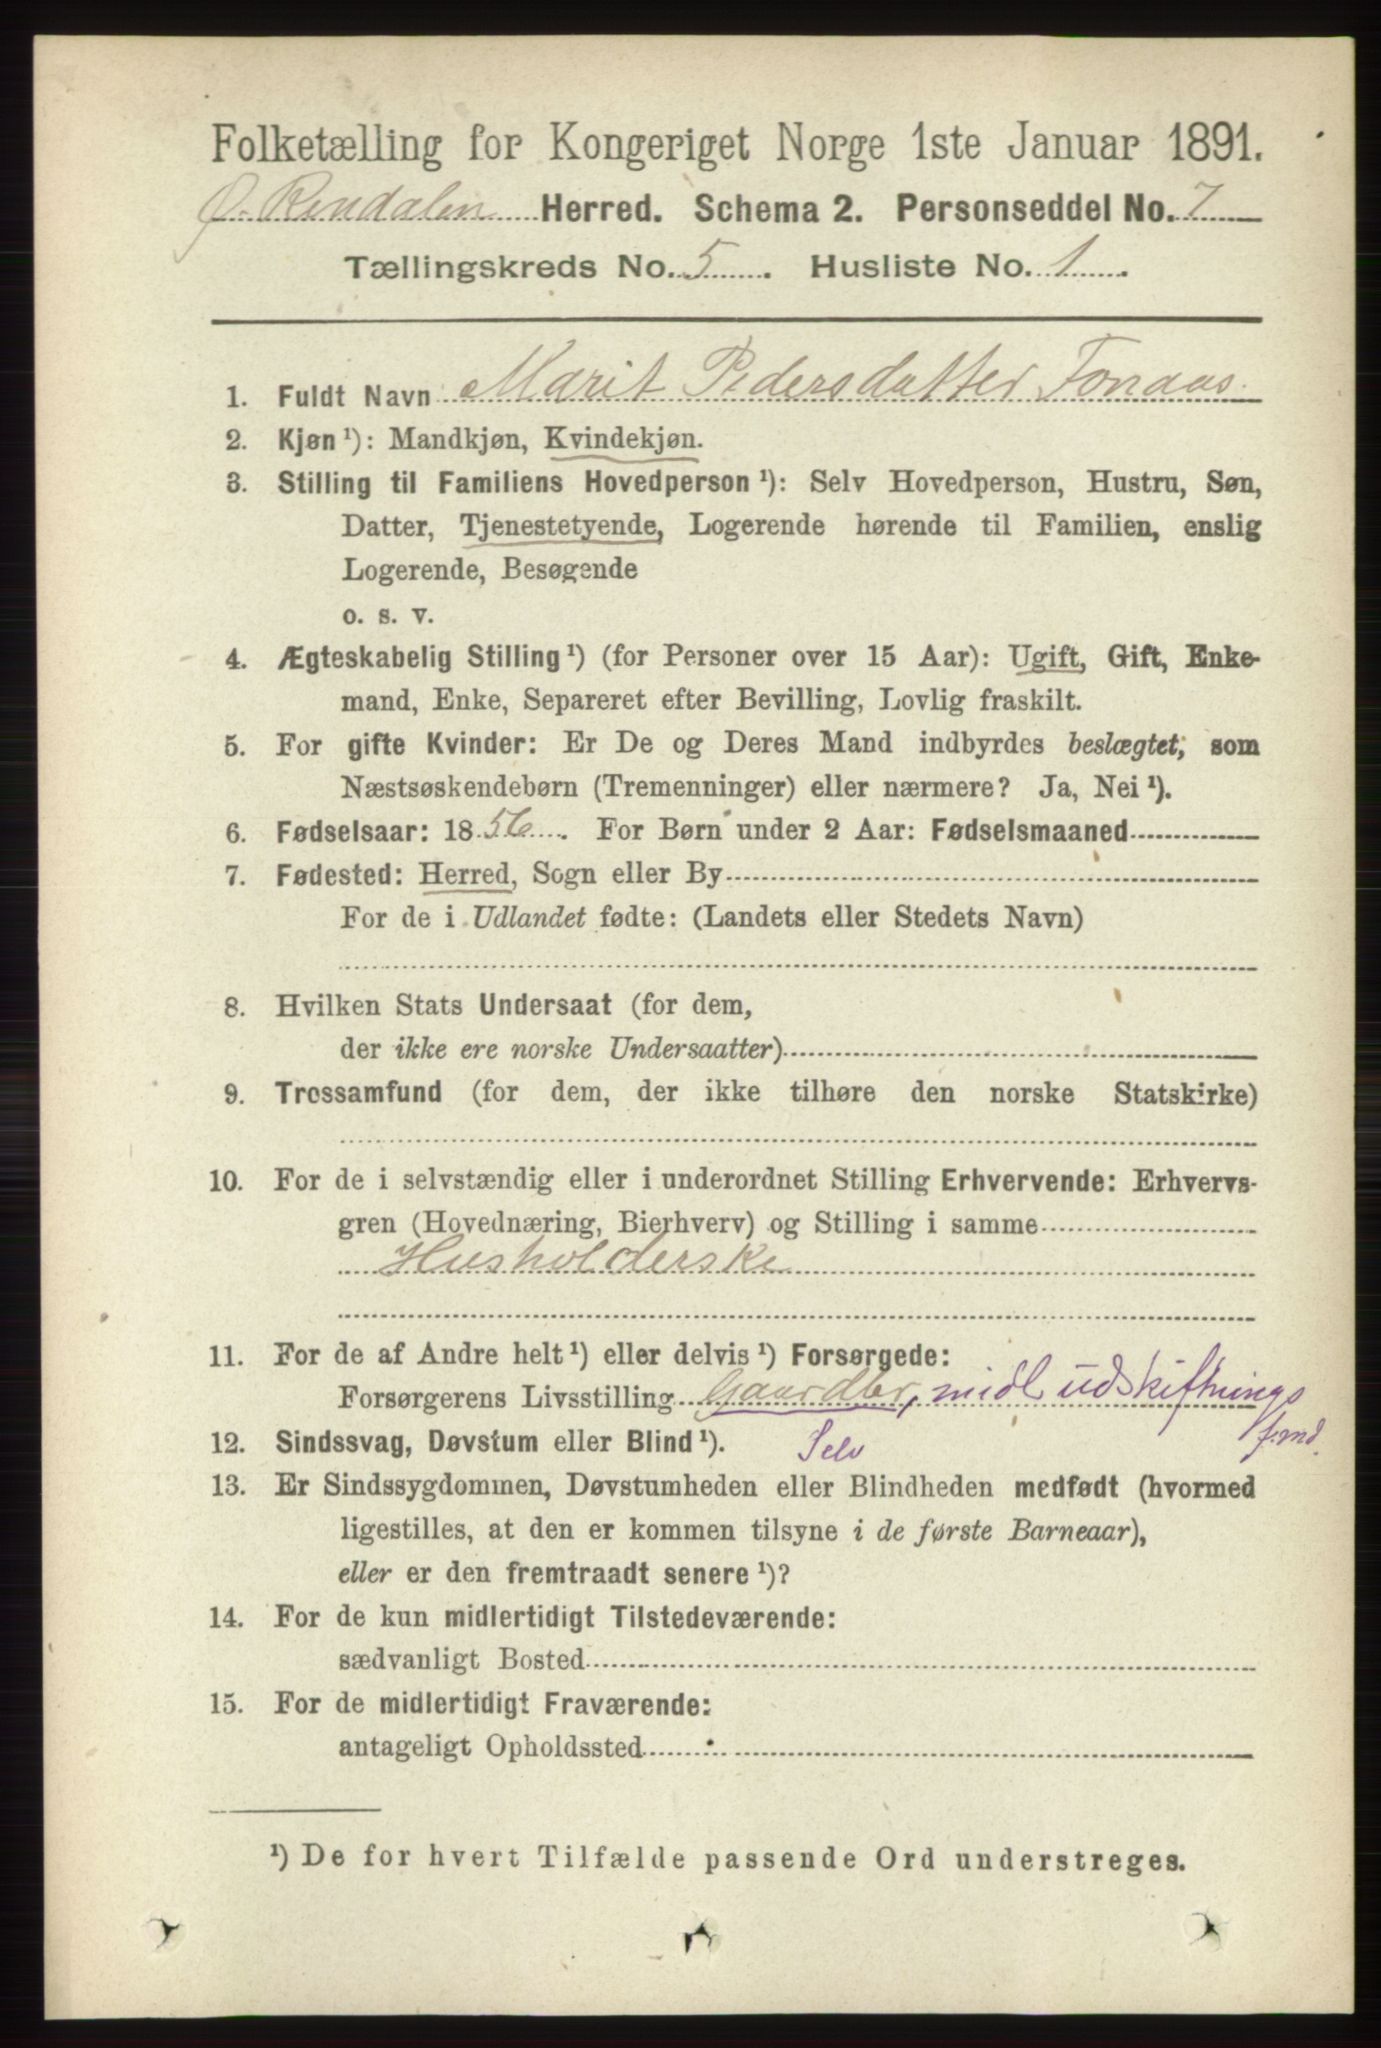 Folketælling for Kongeriget Norge 1ste Januar 1891.
Ø. Rendalen Herred. Schema 2. Personseddel No. 7
Tællingskreds No. 5. Husliste No. 1.
1. Fuldt Navn Marit Pedersdatter Fonaas.
2. Kjøn ¹): Mandkjøn, Kvindekjøn.
3. Stilling til Familiens Hovedperson ¹): Selv Hovedperson, Hustru, Søn,
Datter, Tjenestetyende, Logerende hørende til Familien, enslig
Logerende, Besøgende
o. s. v.
4. Ægteskabelig Stilling ¹) (for Personer over 15 Aar): Ugift, Gift, Enke-
mand, Enke, Separeret efter Bevilling, Lovlig fraskilt.
5. For gifte Kvinder: Er De og Deres Mand indbyrdes beslægtet, som
Næstsøskendebørn (Tremenninger) eller nærmere? Ja, Nei ¹).
6. Fødselsaar: 1856. For Børn under 2 Aar: Fødselsmaaned
7. Fødested: Herred, Sogn eller By
For de i Udlandet fødte: (Landets eller Stedets Navn)
8. Hvilken Stats Undersaat (for dem,
der ikke ere norske Undersaatter)
9. Trossamfund (for dem, der ikke tilhøre den norske Statskirke)
10. For de i selvstændig eller i underordnet Stilling Erhvervende: Erhvervs-
gren (Hovednæring, Bierhverv) og Stilling i samme
Husholderske
11. For de af Andre helt ¹) eller delvis ¹) Forsørgede:
Forsørgerens Livsstilling Gaardbr, midl udskiftnings
f:md.
12. Sindssvag, Døvstum eller Blind ¹). Selv
13. Er Sindssygdommen, Døvstumheden eller Blindheden medfødt (hvormed
ligestilles, at den er kommen tilsyne i de første Barneaar),
eller er den fremtraadt senere ¹)?
14. For de kun midlertidigt Tilstedeværende:
sædvanligt Bosted
15. For de midlertidigt Fraværende:
antageligt Opholdssted
¹) De for hvert Tilfælde passende Ord understreges.